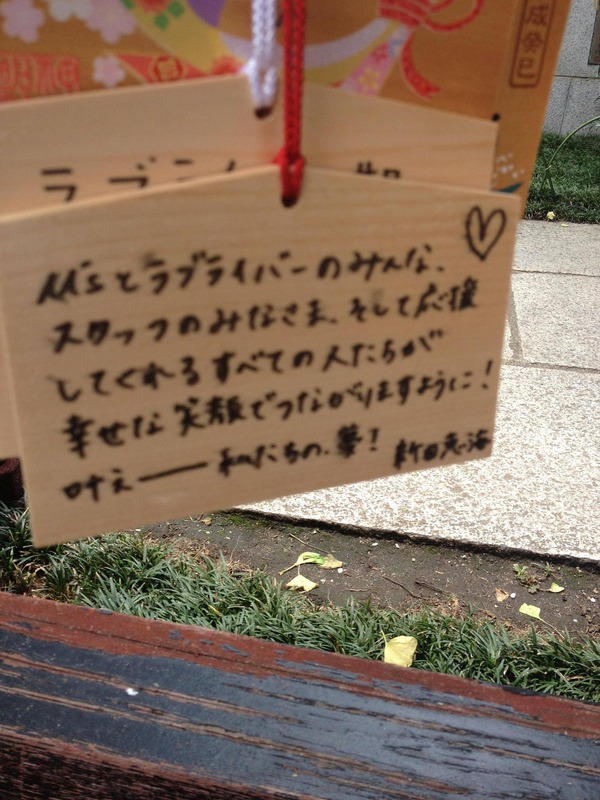 成癸巳
ラブライ
μ'sとラブライバーのみんな、
スタッフのみなさま、そして応援
してくれるすべての人たちが
幸せな笑顔でつながりますように!
叶え──私たちの、夢!
新田恵海